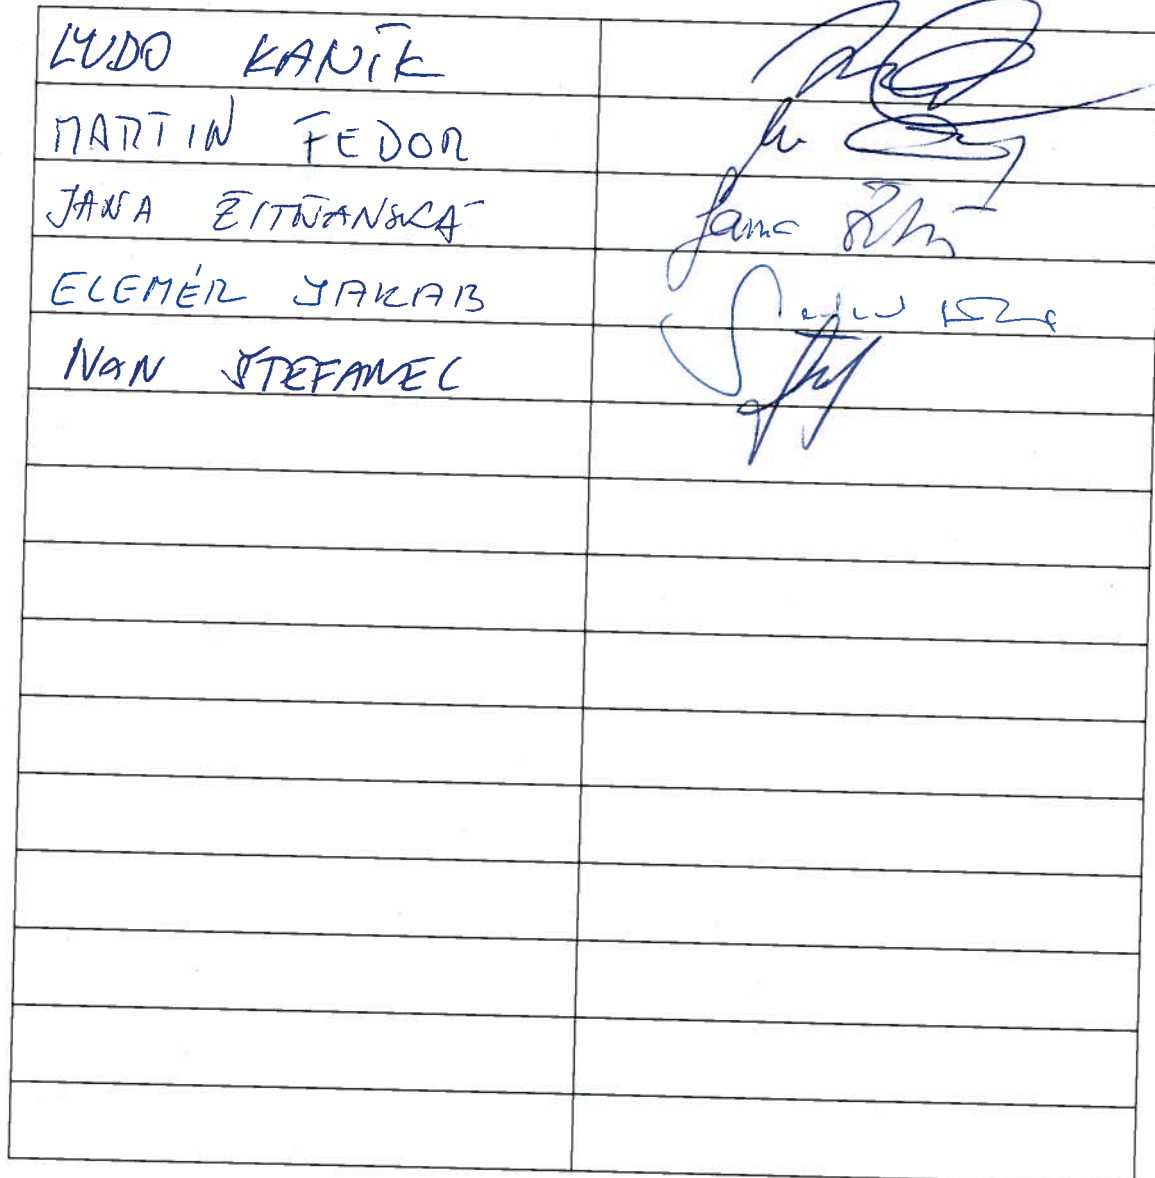 ĽUDO KANÍK
MARTIN FEDOR
JANA ŽITŇANSKÁ
Jana
ELEMÉR JAKAB
IVAN ŠTEFANEC